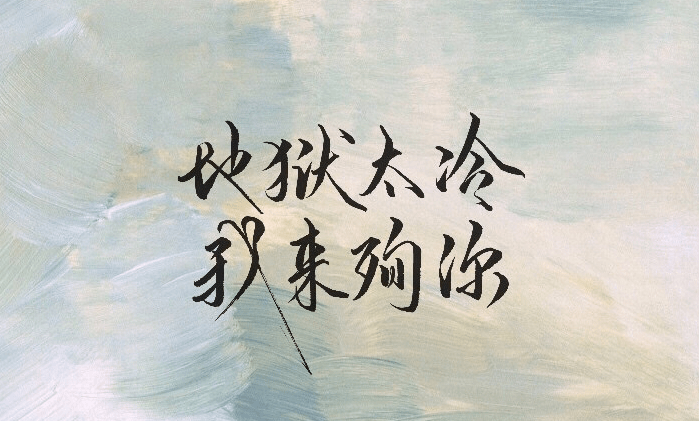 地狱太冷
我来殉你